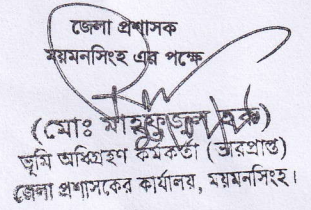 জেলা প্রশাসক
ময়মনসিংহ এর পক্ষে
(মোঃ মাহফুজুল হক)
ভূমি অধিগ্রহণ কর্মকর্তা (ভারপ্রাপ্ত)
জেলা প্রশাসকের কার্যালয়, ময়মনসিংহ।